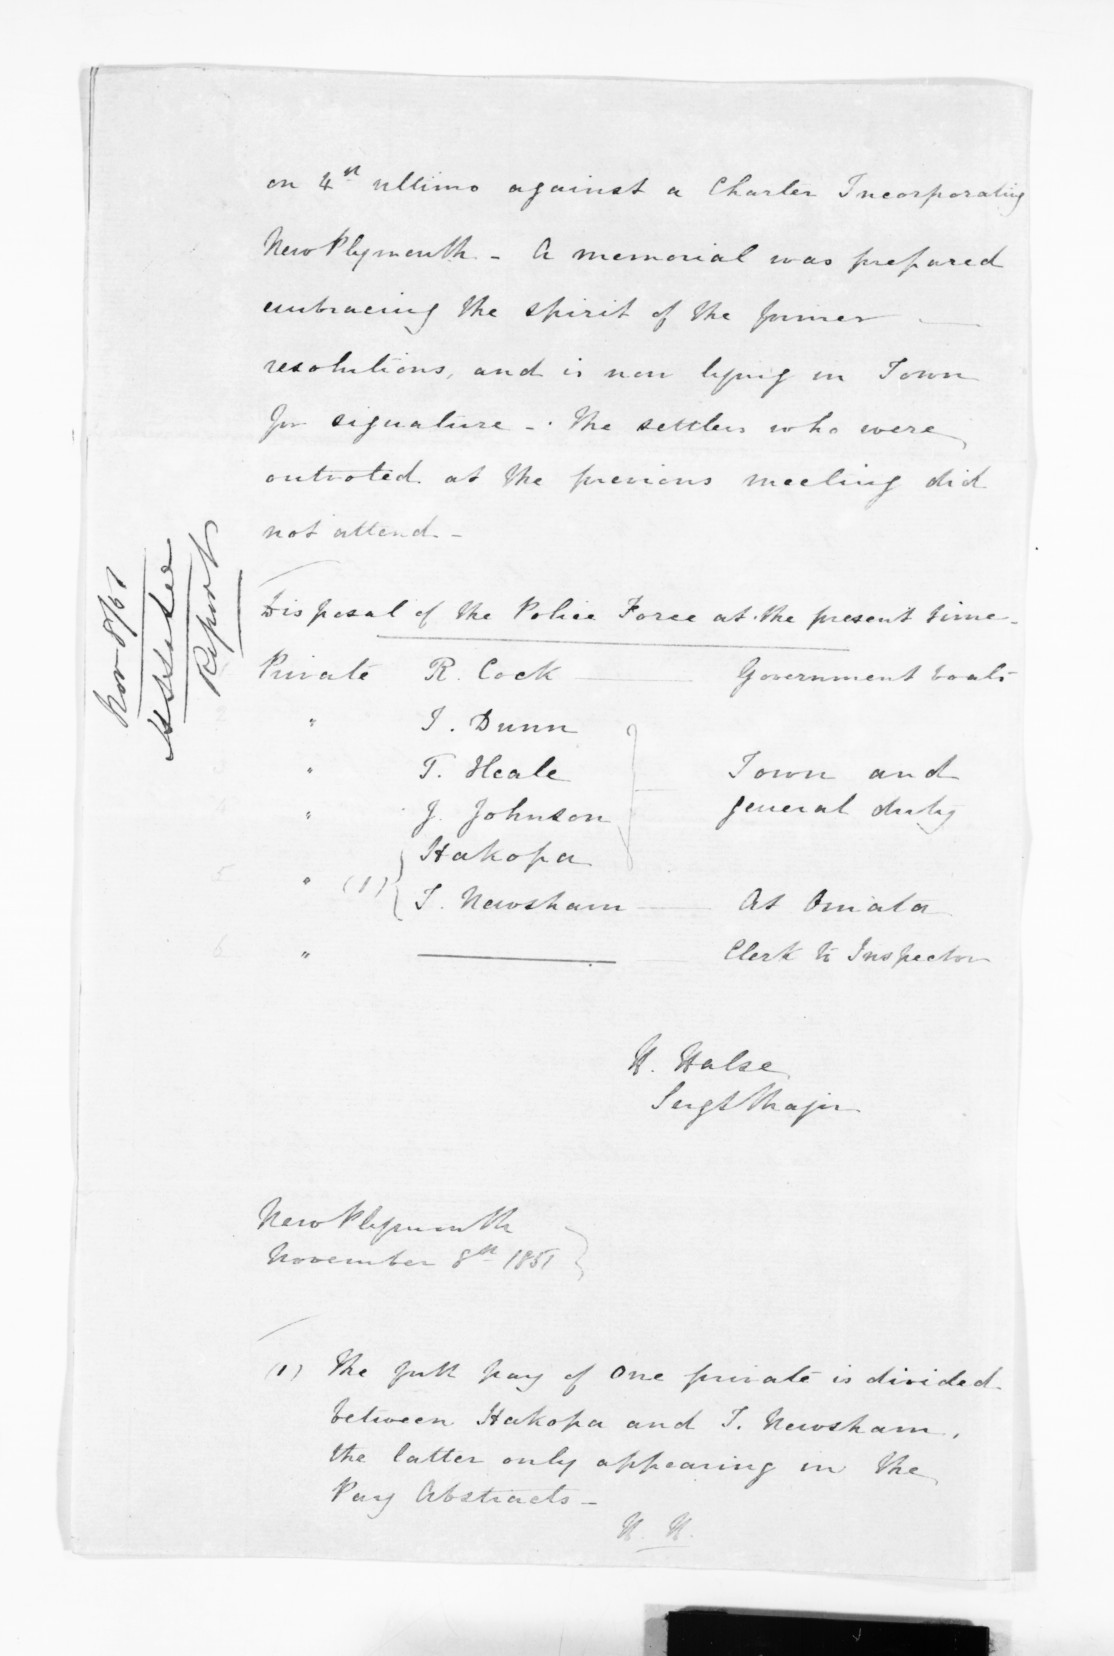 on 4th ultimo against a Charter Incorporating
New Plymouth - A memorial was prepared
embracing the spirit of the former
resolutions, and is now lying in Town
for signature - The settlers who were
outvoted at the previous meeting did
not attend -
Disposal of the Police Force at the present time -
Private R. Cock Government boats
2 " I. Dunn
3 " T. Heale Town and
4 " J. Johnson general duty
Hakopa
5 " (1) T. Newsham At Omata
6 " Clerk to Inspector
H. Halse
Sergt Major
New Plymouth
November 8th 1851
(1) The full pay of one private is divided
between Hakopa and T. Newsham,
the latter only appearing in the
Pay Abstracts -
H. H.
Nov 8/51
Report